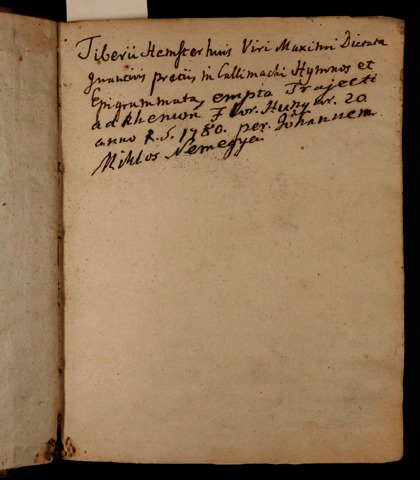 Tiberii Hemsterhuis Viri Maximi Dictata
quantivis pretii in Callimachi Hymnos et
Epigrammata, empta Trajecti
ad Rhenum Flor. Hung. 20.
anno R. S. 1780. per Johannem
Miklos Nemegyei.